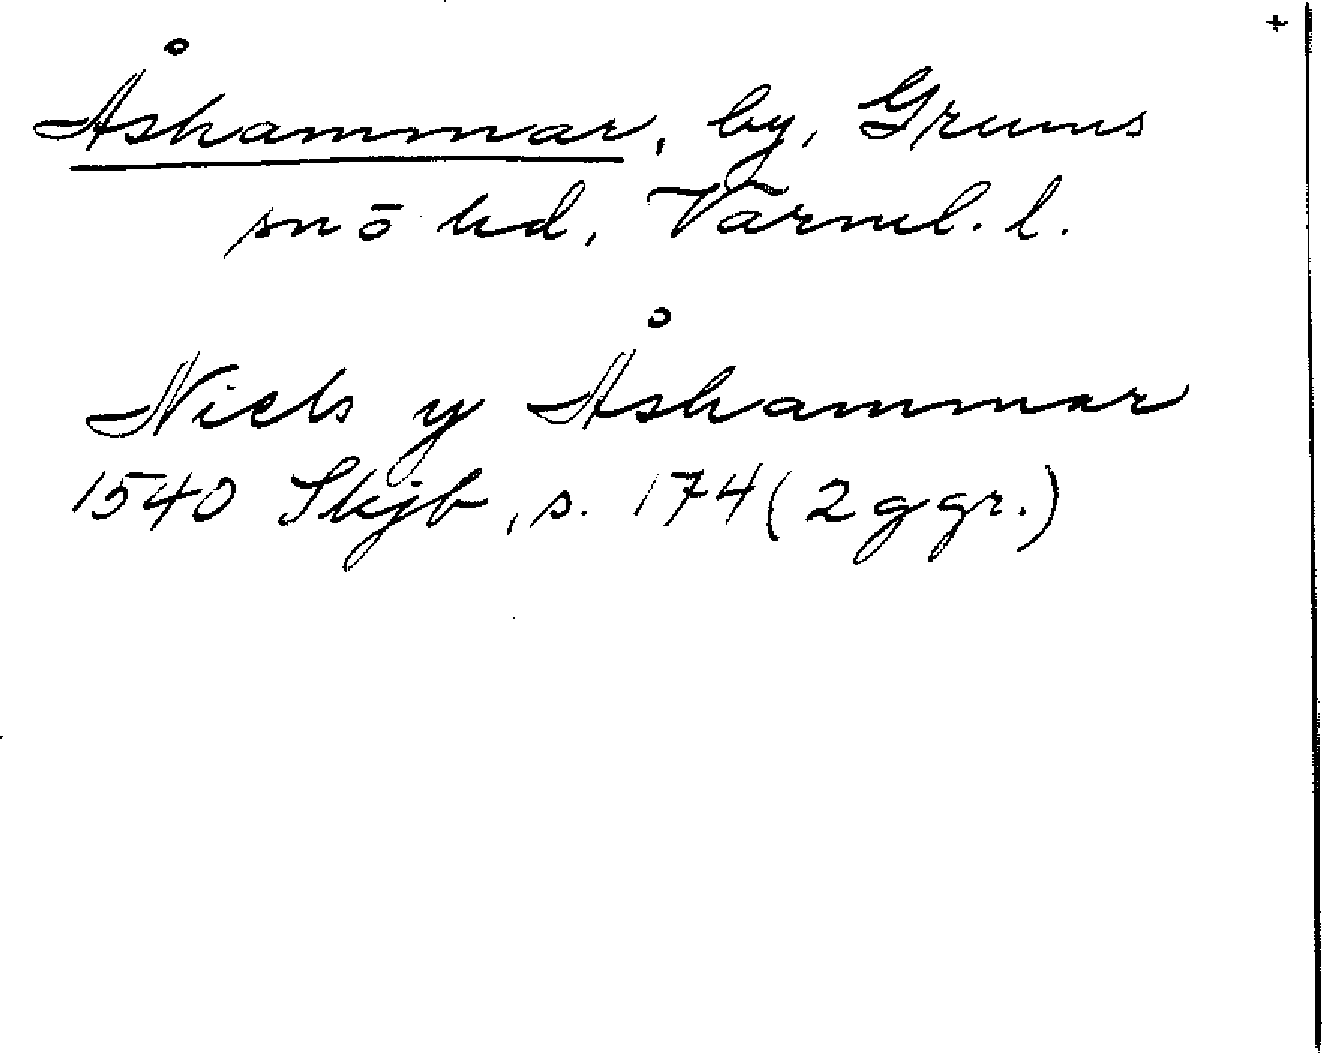 +
Åshammar, by, Grums
sn ō hd, Värml. l.
Niels y Åshammar
1540 Skjb, s. 174 (2 ggr.)